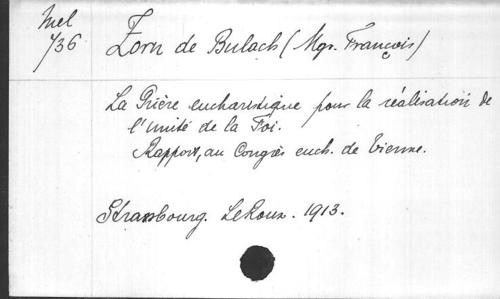 Mel
736
Zorn de Bulach (Mgr. François)
La Prière eucharistique pour la réalisation de
l'unité de la Foi.
Rapport, au Congrès euch. de Vienne.
Strassbourg. LeRoux. 1913.